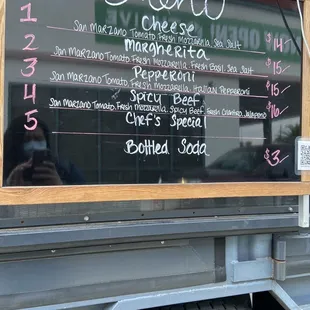 Menu
1 Cheese $14
San Marzano Tomato, Fresh Mozzarella, Sea Salt
2 Margherita $15
San Marzano Tomato, Fresh Mozzarella, Fresh Basil, Sea Salt
3 Pepperoni $15
San Marzano Tomato, Fresh Mozzarella, Italian Pepperoni
4 Spicy Beef $16
San Marzano Tomato, Fresh Mozzarella, Spicy Beef, Fresh Cilantro, Jalapeno
5 Chef's Special
Bottled Soda $3